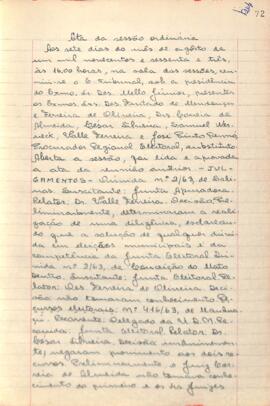 72
Ata da sessão ordinária
Aos sete dias do mês de agôsto de
um mil novecentos e sessenta e três,
às 16.00 horas, na sala das sessões, reu-
niu-se o Tribunal, sob a presidência
do Exmo. sr. Des. Mello Júnior, presentes
os Exmos. srs. Des. Furtado de Mendonça
e Ferreira de Oliveira, Drs. Corrêia de
Almeida, César Silveira, Samuel
Valle Ferreira e José Pinto Renno,
Procurador Regional Eleitoral, substituto.
Aberta a sessão, foi lida e aprovada
a ata da reunião anterior. - JUL-
GAMENTOS - nº 2/63, de
Suscitante: Junta Apuradora.
Relator: Dr. Valle Ferreira. Decisão: Pre-
liminarmente, determinaram a reali-
zação de uma diligência, esclarecen-
do que a solução de qualquer
em eleições municipais é da
competência da Junta Eleitoral.
nº 3/63, de Conceição do Mato
Dentro. Suscitante: Junta Eleitoral. Re-
lator: Des. Ferreira de Oliveira. Deci-
são: não tomaram conhecimento. Re-
cursos eleitorais: nº 446/63, de
Recorrente: Delegado da U.D.N. Re-
corrida: Junta Eleitoral. Relator: Dr.
César Silveira. Decisão:
negaram provimento aos dois re-
cursos. Preliminarmente o Juiz Cor-
rêia de Almeida não tomava conhe-
cimento do primeiro e os srs. Juizes